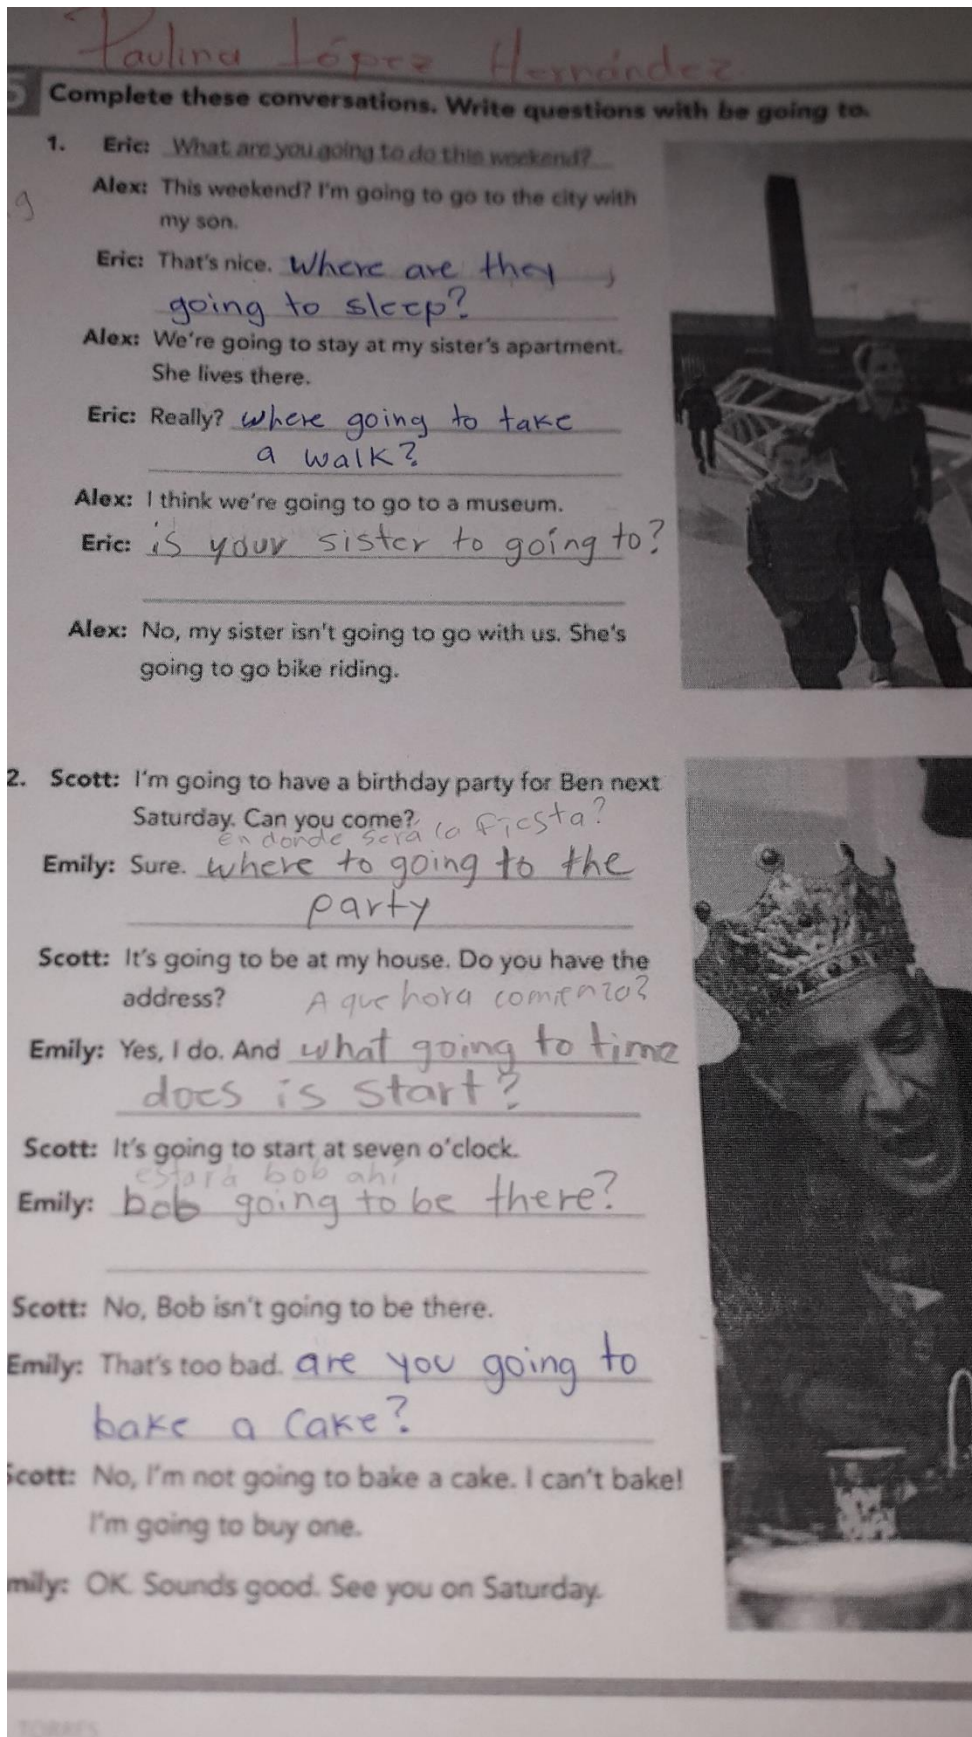 Paulina López Hernández
5 Complete these conversations. Write questions with be going to.
1. Eric: What are you going to do this weekend?
Alex: This weekend? I'm going to go to the city with
my son.
Eric: That's nice. Where are they
going to sleep?
Alex: We're going to stay at my sister's apartment.
She lives there.
Eric: Really? where going to take
a walk?
Alex: I think we're going to go to a museum.
Eric: is your sister to going to?
Alex: No, my sister isn't going to go with us. She's
going to go bike riding.
2. Scott: I'm going to have a birthday party for Ben next
Saturday. Can you come?
en donde será la fiesta?
Emily: Sure. where to going to the
party
Scott: It's going to be at my house. Do you have the
address? A que hora comienza?
Emily: Yes, I do. And what going to time
does is start?
Scott: It's going to start at seven o'clock.
estará bob ahí
Emily: bob going to be there?
Scott: No, Bob isn't going to be there.
Emily: That's too bad. are you going to
bake a cake?
Scott: No, I'm not going to bake a cake. I can't bake!
I'm going to buy one.
mily: OK. Sounds good. See you on Saturday.
TORRES